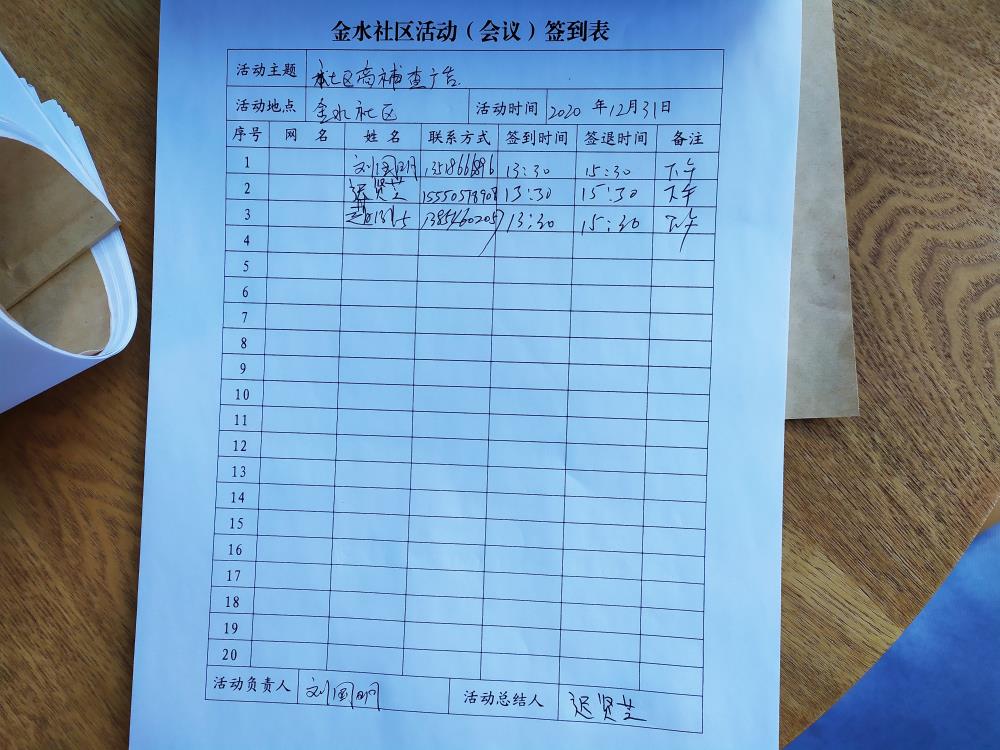 金水社区活动（会议）签到表
活动主题 社区商補查广告
活动地点 金水社区 活动时间 2020 年12月31日
序号 网 名 姓 名 联系方式 签到时间 签退时间 备注
1 刘国明 13:30 15:30 下午
2 迟贤芝 13:30 15:30 下午
3 13:30 15:30 下午
4
5
6
7
8
9
10
11
12
13
14
15
16
17
18
19
20
活动负责人 刘国明 活动总结人 迟贤芝